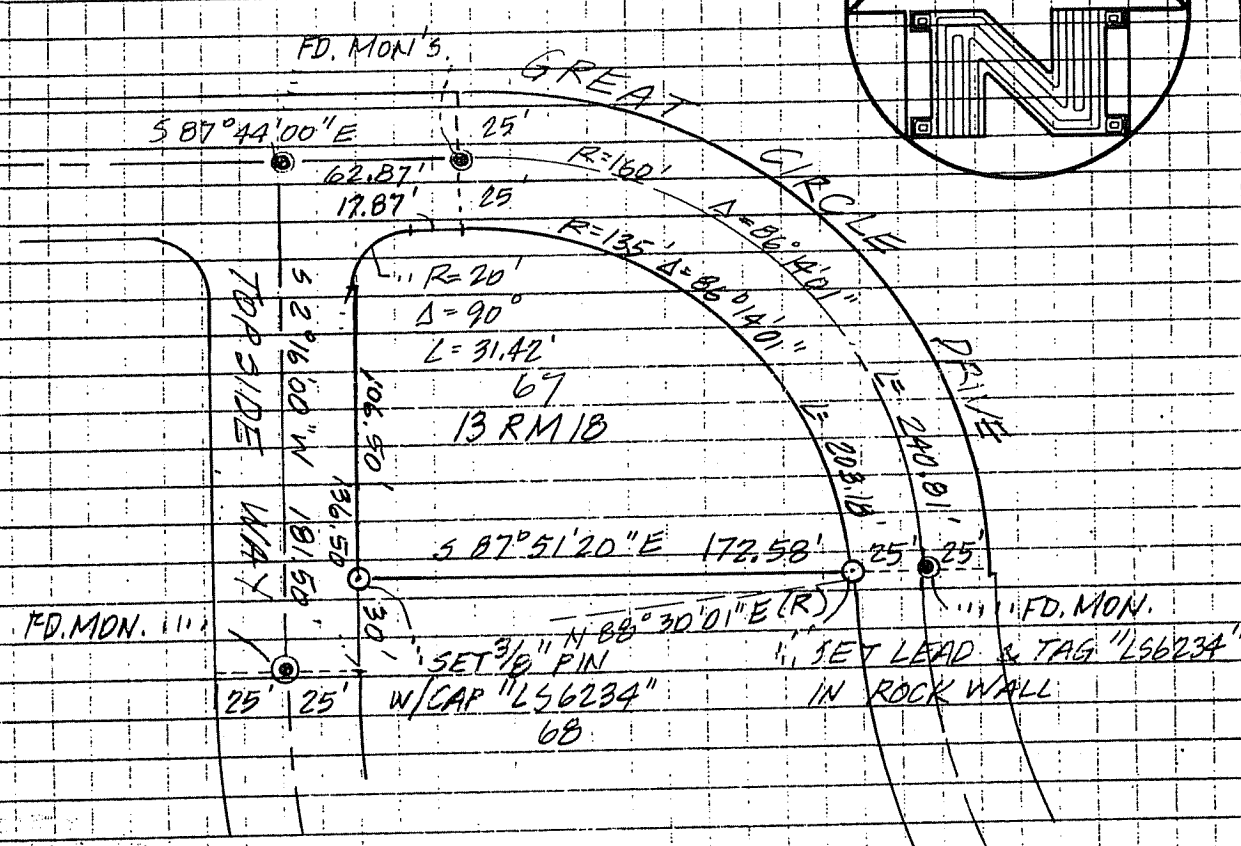 FD. MON'S.
GREAT CIRCLE DRIVE
S 87°44'00"E
25'
62.87'
25'
17.87'
R=160'
Δ=86°14'01"
L= 240.81'
R=135' Δ=86°14'01"
L= 203.18'
R=20'
Δ=90°
L=31.42'
67
13 RM 18
TOPSIDE WAY
S 2°16'00"W 181.50
106.50'
136.50
30'
S 87°51'20"E 172.58'
25' 25'
N 88°30'01"E (R)
FD. MON.
FD. MON.
SET 3/8" PIN
W/CAP "LS6234"
SET LEAD & TAG "LS6234"
IN ROCK WALL
25' 25'
68
N